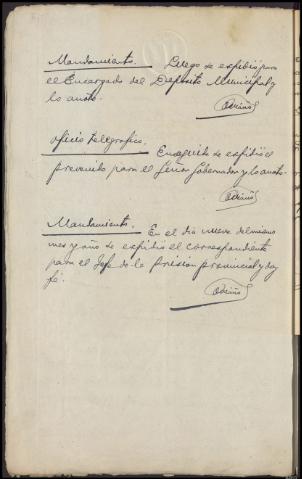 Mandamiento. Luego se expidió para
el Encargado del Depósito Municipal y
lo anoto.
Oficio telegrafico. Enseguida se expidió el
prevenido para el Señor Gobernador y lo anoto.
Mandamiento. En el dia nueve del mismo
mes y año se expidió el correspondiente
para el Jefe de la prision provincial y doy
fé.